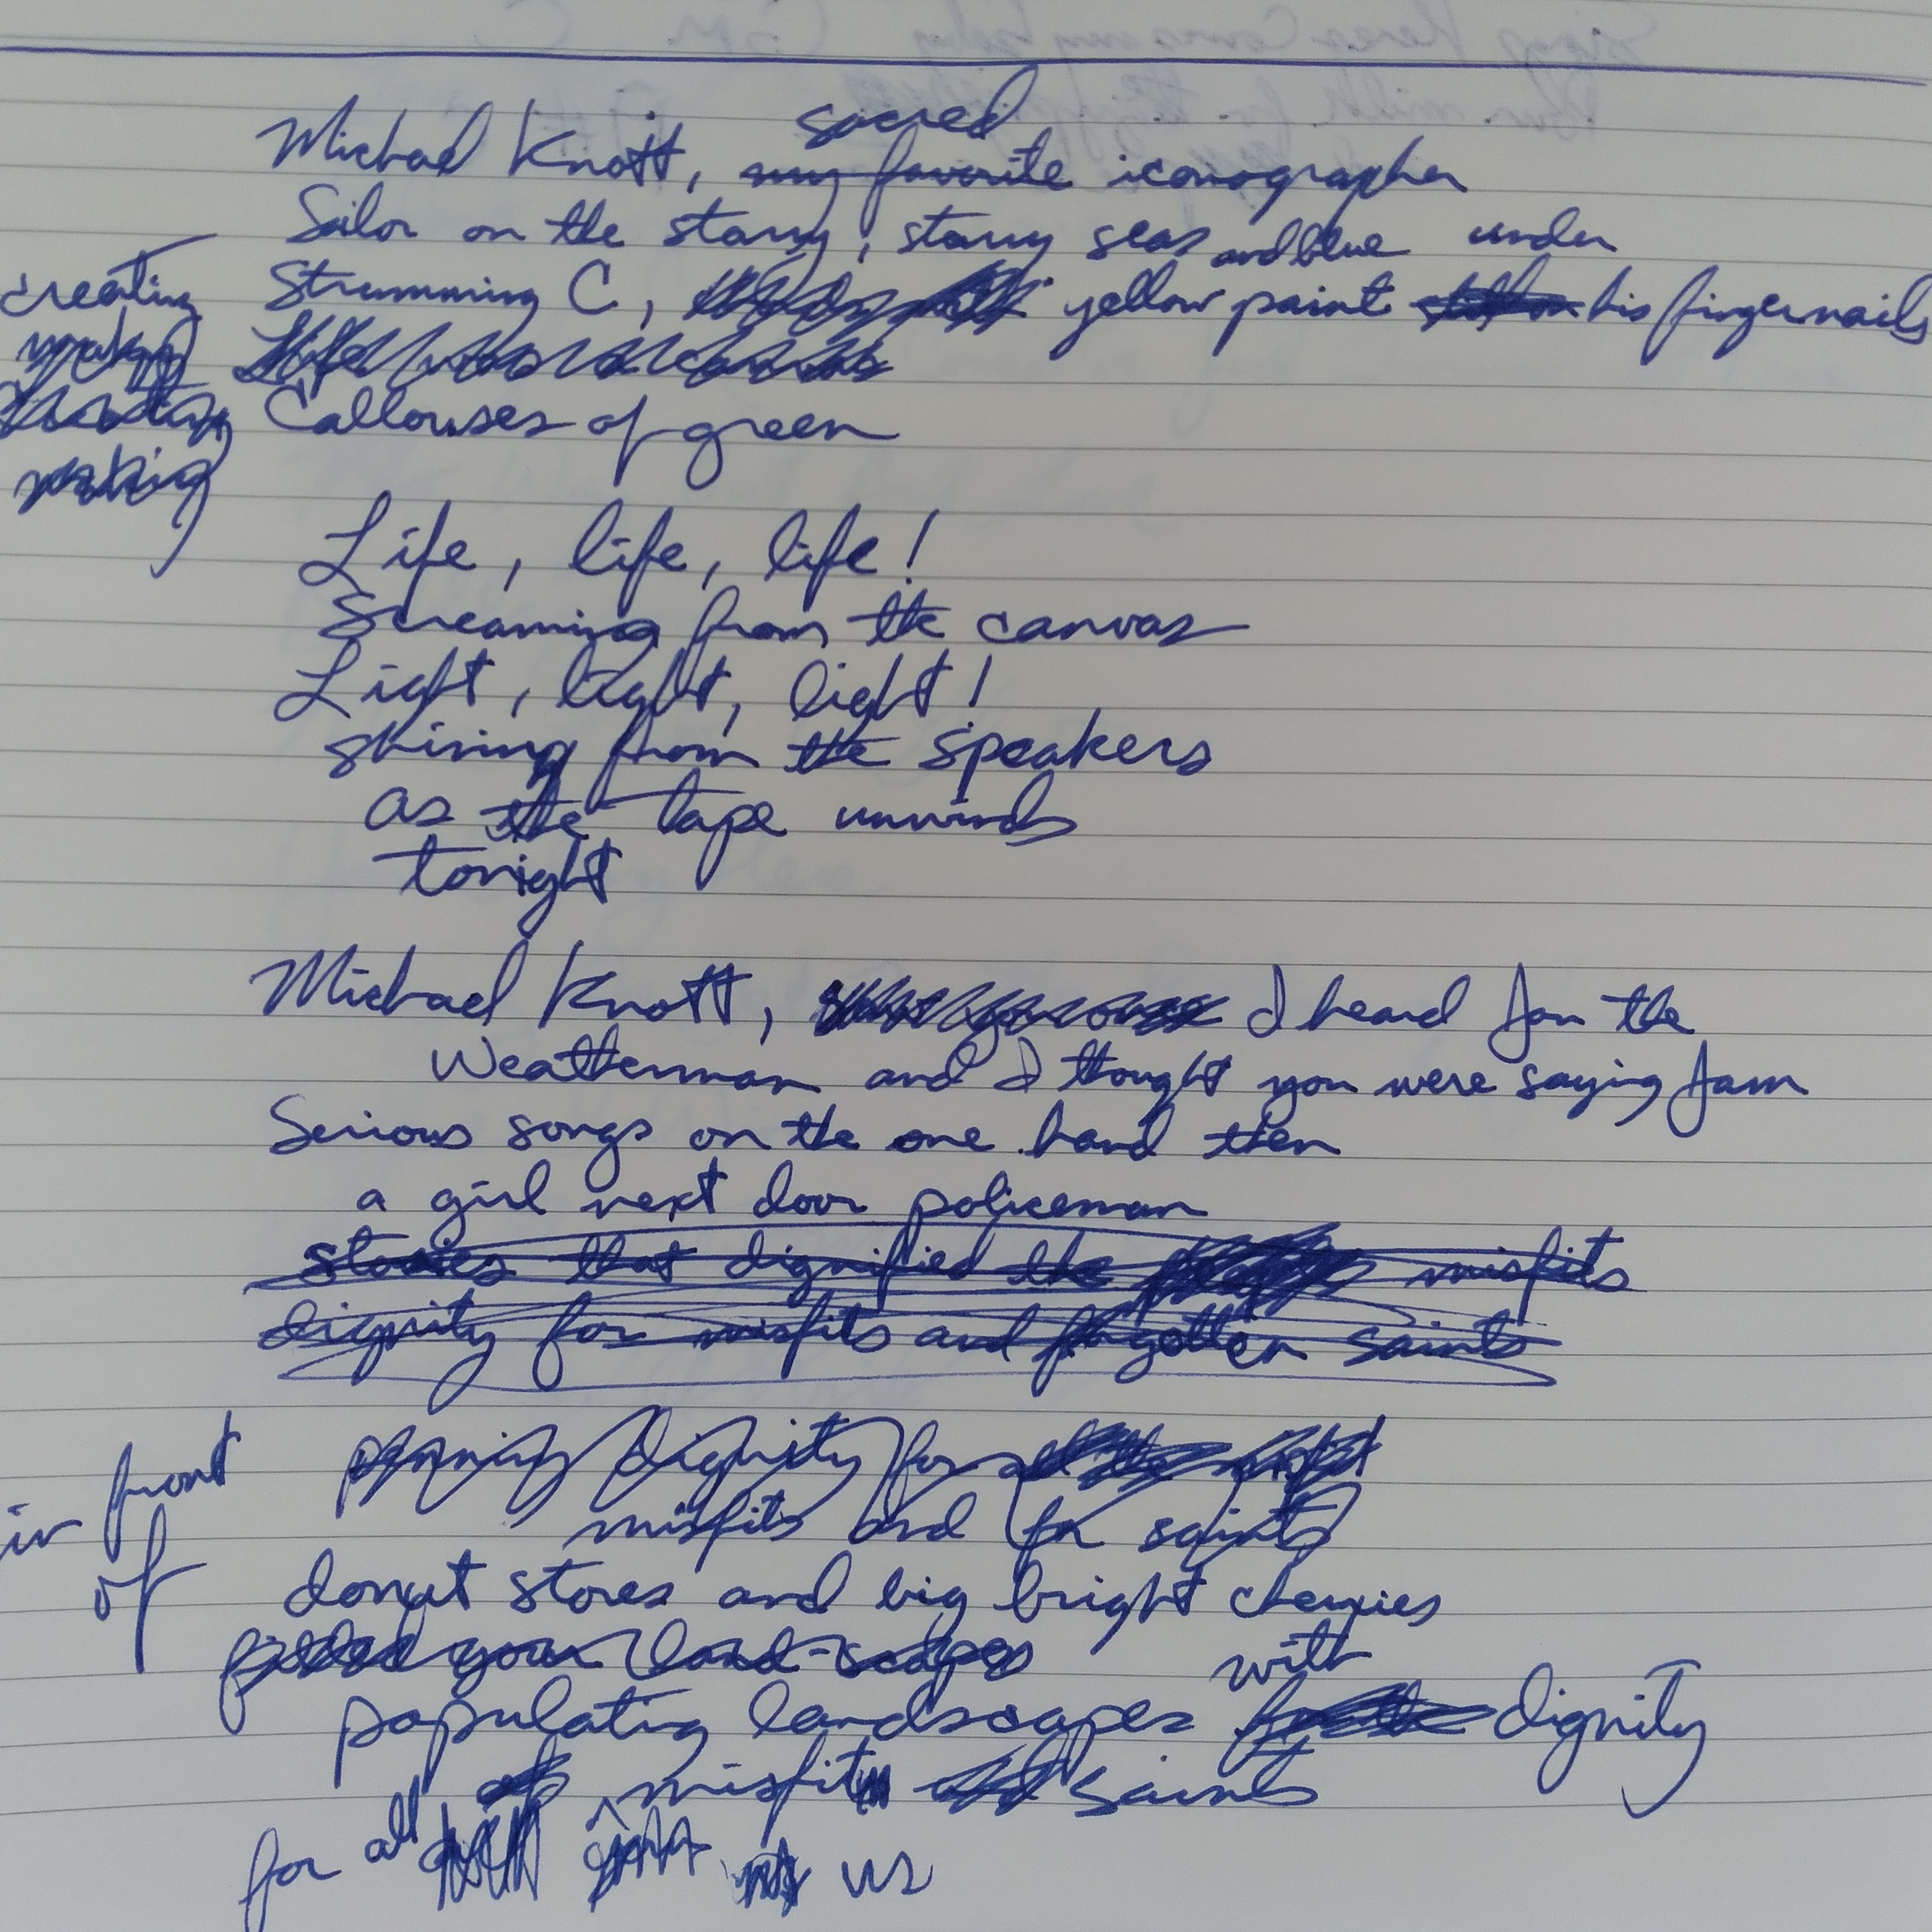 sacred
Michael Knott, my favorite iconographer
Sailor on the starry, starry seas and blue under
creating Strumming C, yellow paint his fingernails
making
Callouses of green
making
Life, life, life!
Screaming from the canvas
Light, light, light!
shining from the speakers
as the tape unwinds
tonight
Michael Knott, I heard Jan the
Weatherman and I thought you were saying Jam
Serious songs on the one hand then
a girl next door policeman
stories that dignified the misfits
dignity for misfits and forgotten saints
in front of
penning dignity for
misfits and for saints
donut stores and big bright cherries
filled your land-scapes with
populating landscapes dignity
misfit saints
for all us